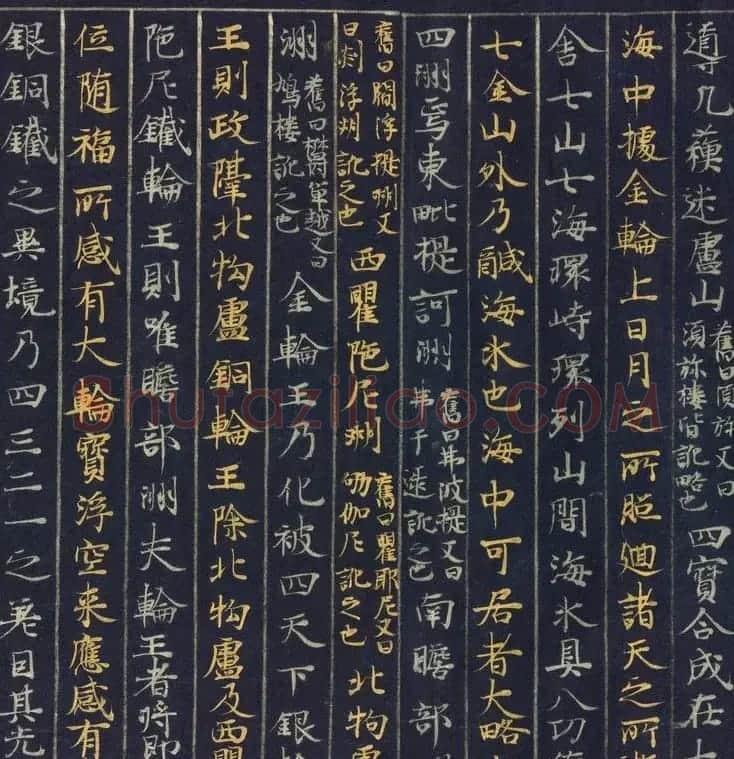 導凡蘓迷盧山舊曰須弥又曰須弥樓皆訛略也四寶合成在
海中據金輪上日月之所照廻諸天之所
舍七山七海環峙環列山間海水具八功
七金山外乃鹹海水也海中可居者大略
四洲焉東毗提訶洲舊曰弗波提又曰弗于逮訛之也南瞻部
舊曰閻浮提洲又曰剡浮洲訛之也西瞿陁尼洲舊曰瞿耶尼又曰劬伽尼訛之也北拘
洲舊曰欝單越又曰鳩樓訛之也金輪王乃化被四天下銀
王則政隆北拘盧銅輪王除北拘盧及西
陁尼鐵輪王則唯瞻部洲夫輪王者將即
位随福所感有大輪寶浮空来應感有
銀銅鐵之異境乃四三二一之差因其光
Shutaziliao.COM